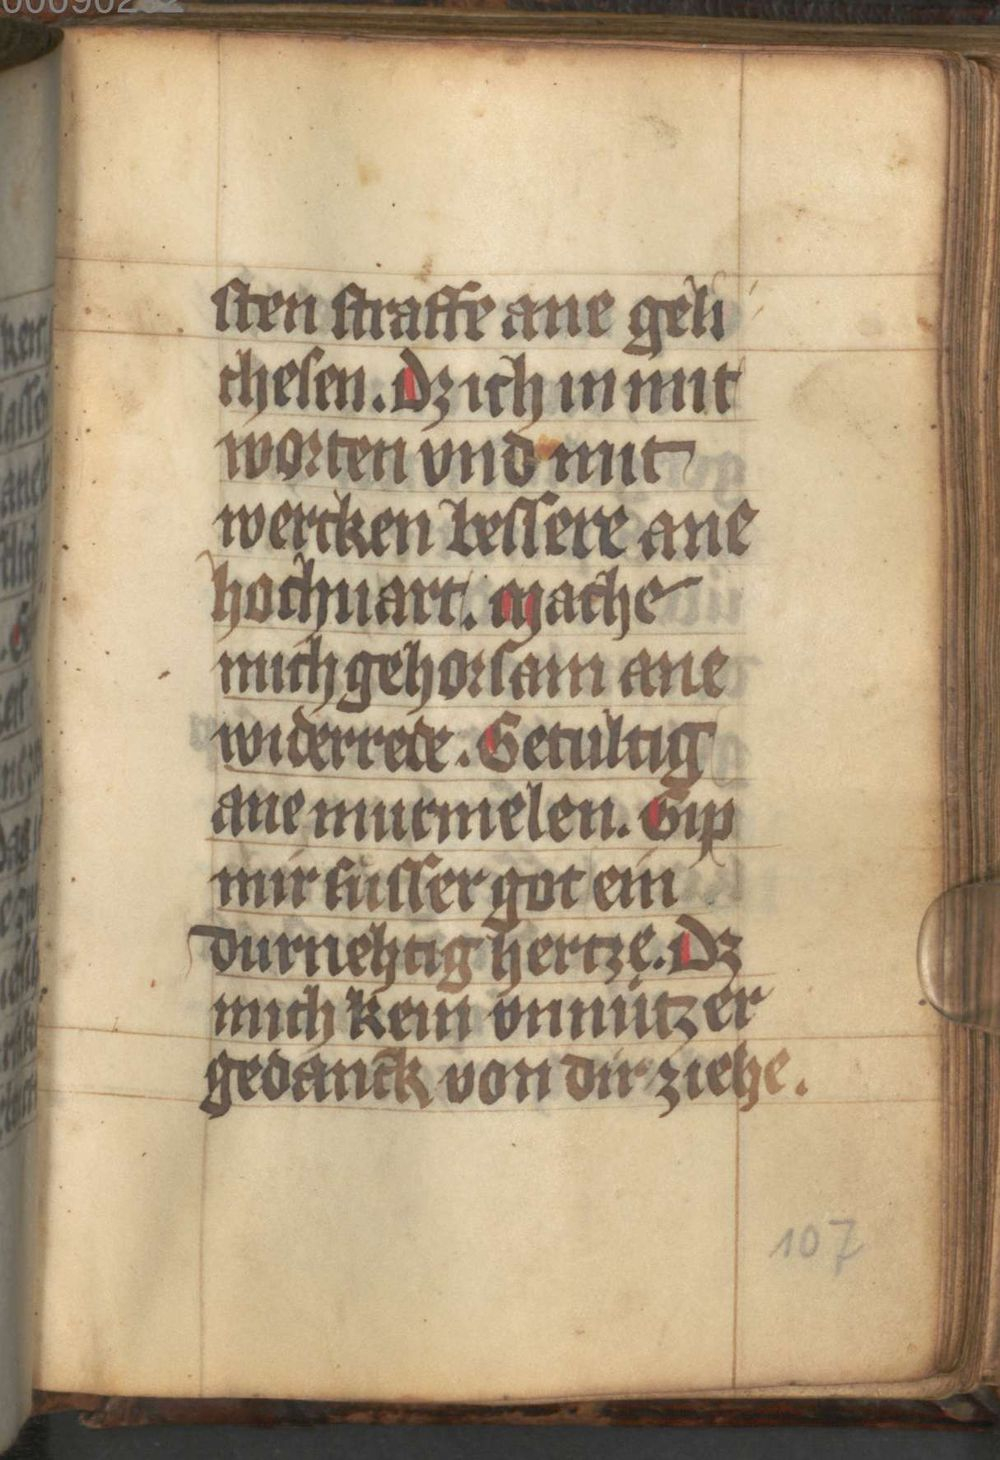 sten straffe ane geli
chesen. Dz ich in mit
worten vnd mit
wercken bessere ane
hochuart. Mache
mich gehorsam ane
widerrede. Getúltig
ane murmelen. Gip
mir sússer got ein
durnehtig hertze. Dz
mich kein vnnútzer
gedanck von dir ziehe.
107